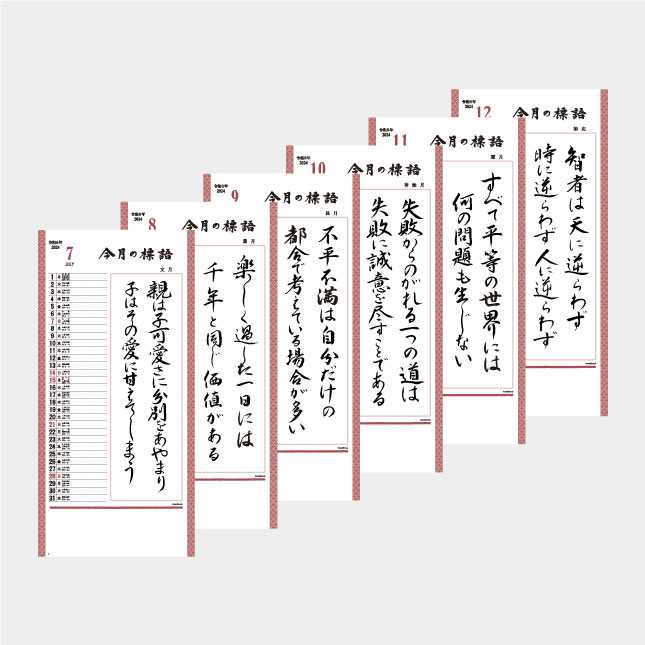 令和6年
2024
7
JULY
今月の標語
文月
親は子可愛さに分別をあやまり
子はその愛に甘えてしまう
1
2
3
4
5
6
7
8
9
10
11
12
13
14
15
16
17
18
19
20
21
22
23
24
25
26
27
28
29
30
31
令和6年
2024
8
今月の標語
葉月
楽しく過した一日には
千年と同じ価値がある
令和6年
2024
9
今月の標語
長月
不平不満は自分だけの
都合で考えている場合が多い
令和6年
2024
10
今月の標語
神無月
失敗からのがれる一つの道は
失敗に誠意を尽すことである
令和6年
2024
11
今月の標語
霜月
すべて平等の世界には
何の問題も生じない
令和6年
2024
12
今月の標語
師走
智者は天に逆らわず
時に逆らわず人に逆らわず